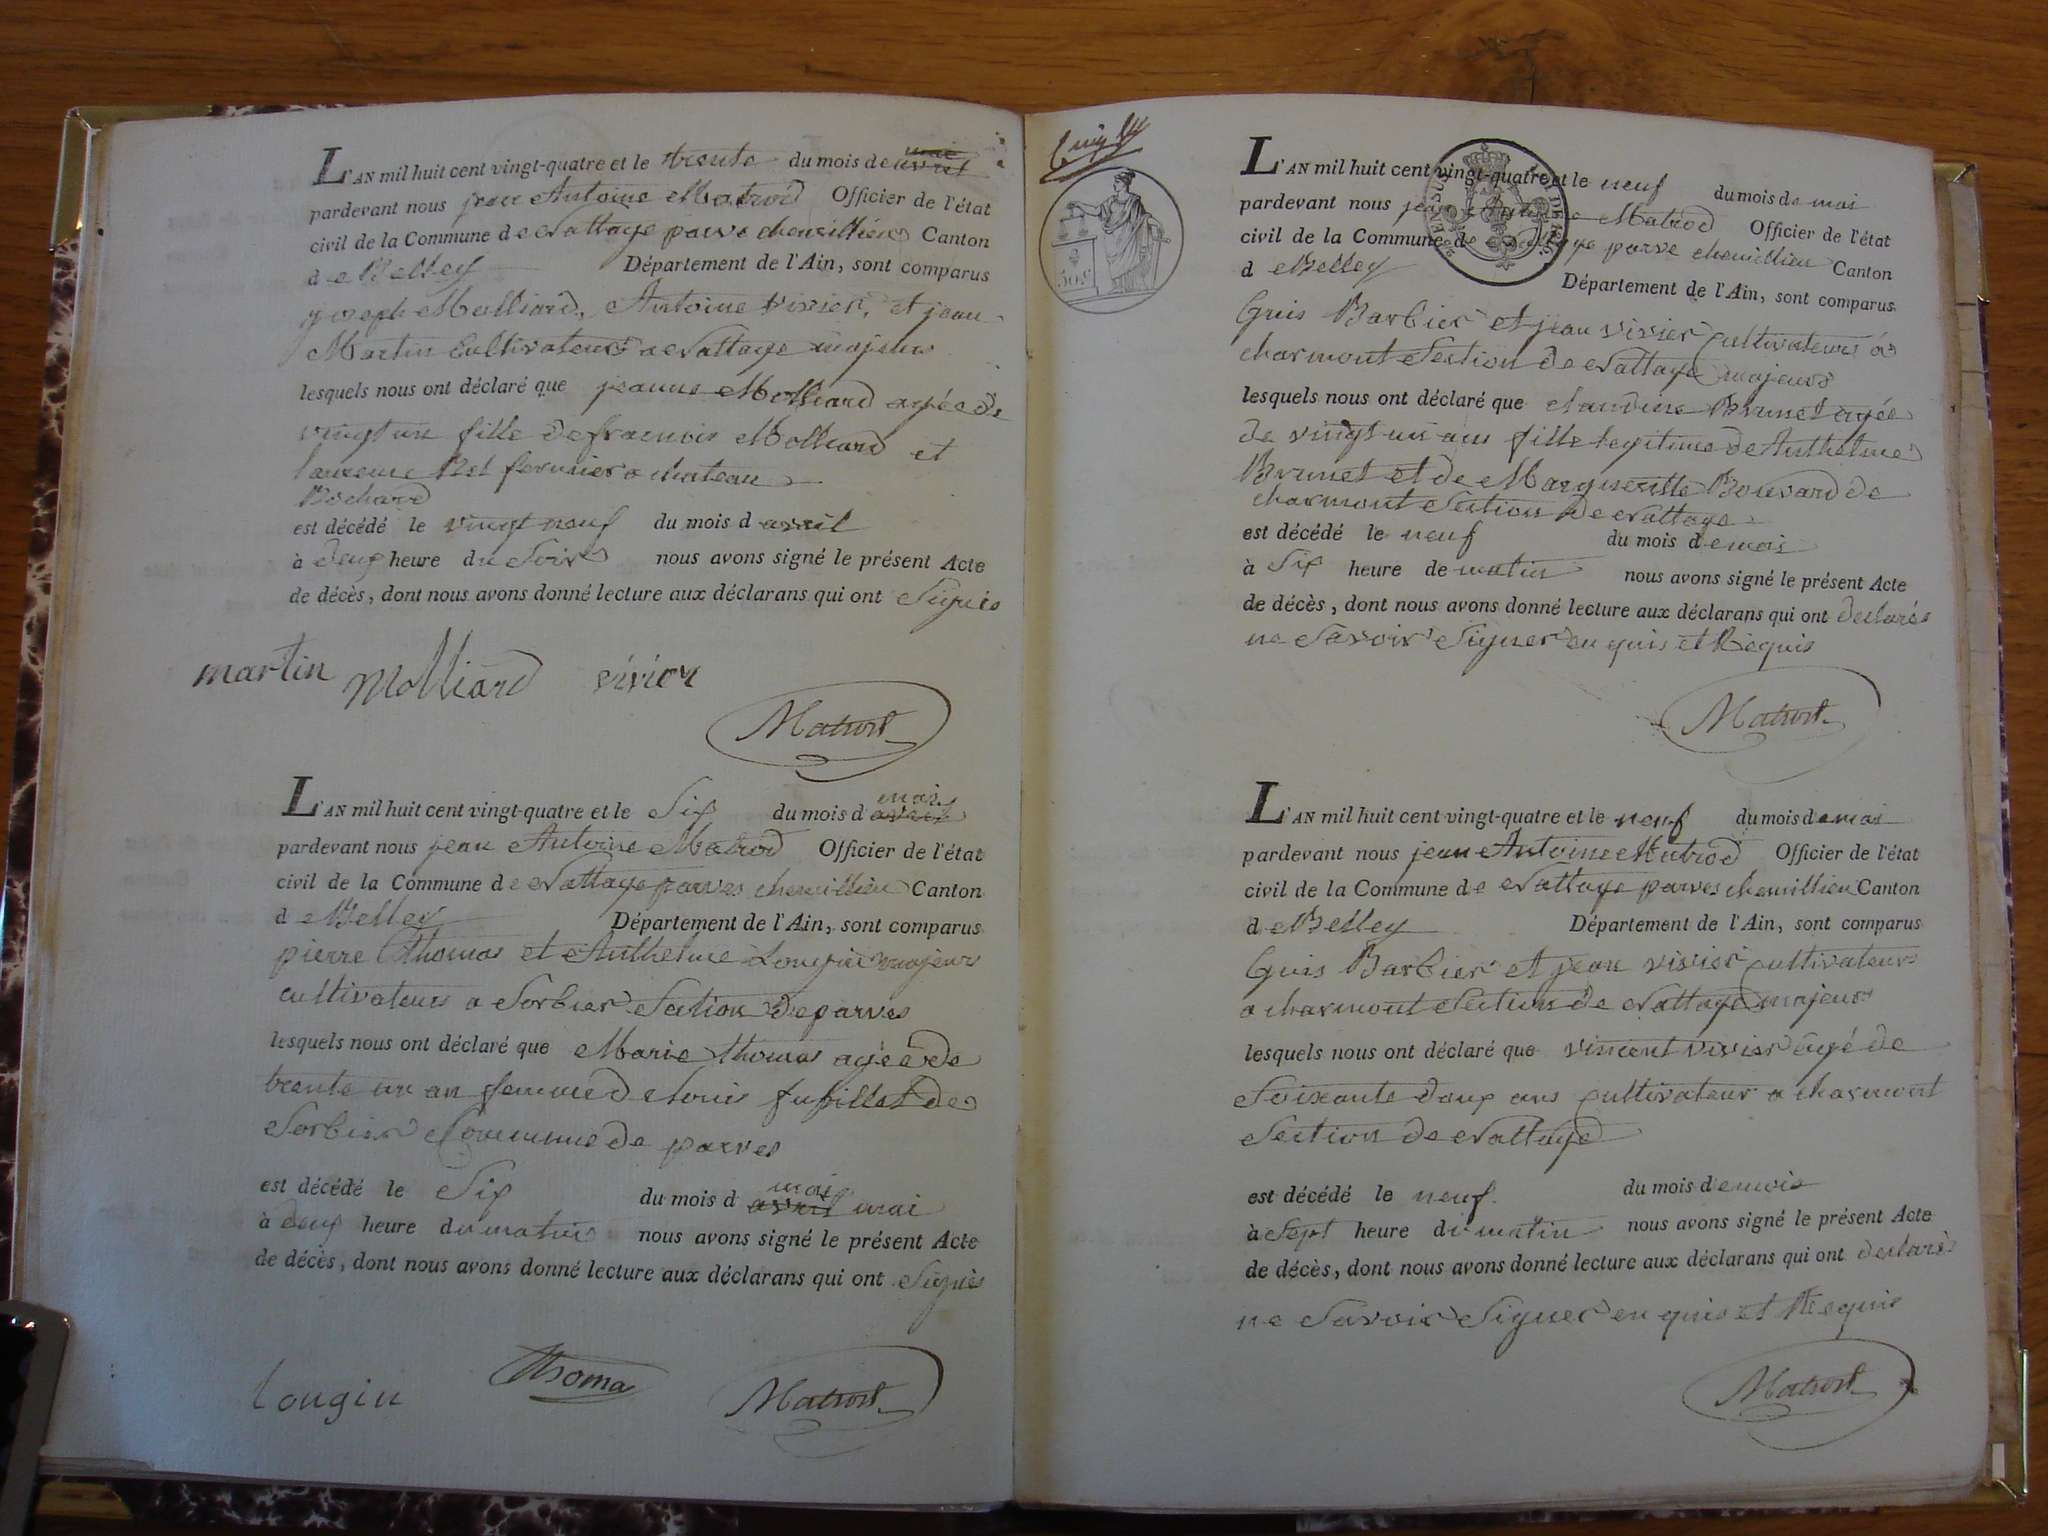 L'AN mil huit cent vingt-quatre et le trente du mois de mai avril
pardevant nous jean Antoine Matrod Officier de l'état
civil de la Commune de Nattage parve chemillieu Canton
de Belley Département de l'Ain, sont comparus
joseph Molliard, Antoine vivier, et jean
Martin Cultivateurs a Nattage majeurs
lesquels nous ont déclaré que jeanne Molliard agée de
vingt un fille de francois Molliard et
laurence fermier a chateau
Bochard
est décédé le vingt neuf du mois d avril
à deux heure du Soir nous avons signé le présent Acte
de décès, dont nous avons donné lecture aux déclarans qui ont Signés
martin Molliard vivier
Matrod
L'AN mil huit cent vingt-quatre et le Six du mois d mai
pardevant nous jean Antoine Matrod Officier de l'état
civil de la Commune de Nattage parves chemillieu Canton
de Belley Département de l'Ain, sont comparus
pierre Thomas et Anthelme Longin majeur
cultivateurs a Sorbier Section de parves
lesquels nous ont déclaré que Marie thomas agée de
trente un an femme de louis de
Sorbier Commune de parves
est décédé le Six du mois d mai avril mai
à deux heure du matin nous avons signé le présent Acte
de décès, dont nous avons donné lecture aux déclarans qui ont Signés
longin Thoma Matrod
L'AN mil huit cent vingt-quatre et le neuf du mois de mai
pardevant nous jean Antoine Matrod Officier de l'état
civil de la Commune de Nattage parve chemillieu Canton
d Belley Département de l'Ain, sont comparus
Guis Barbier et jean vivier Cultivateurs a
charmont Section de Nattage majeurs
lesquels nous ont déclaré que claudine Brunet agée
de vingt un ans fille legitime de Anthelme
Brunet et de Margueritte Bouvard de
charmont Section de Nattage
est décédé le neuf du mois de mai
à Six heure de matin nous avons signé le présent Acte
de décès, dont nous avons donné lecture aux déclarans qui ont declarés
ne Savoir Signer en quis et Requis
Matrod
L'AN mil huit cent vingt-quatre et le neuf du mois de mai
pardevant nous jean Antoine Matrod Officier de l'état
civil de la Commune de Nattage parves chemillieu Canton
de Belley Département de l'Ain, sont comparus
Guis Barbier et jean vivier Cultivateurs
a charmont Section de Nattage majeurs
lesquels nous ont déclaré que vincent vivier agé de
Soixante douze ans Cultivateur a charmont
Section de Nattage
est décédé le neuf du mois de mai
à Sept heure du matin nous avons signé le présent Acte
de décès, dont nous avons donné lecture aux déclarans qui ont declarés
ne Savoir Signer en quis et Requis
Matrod